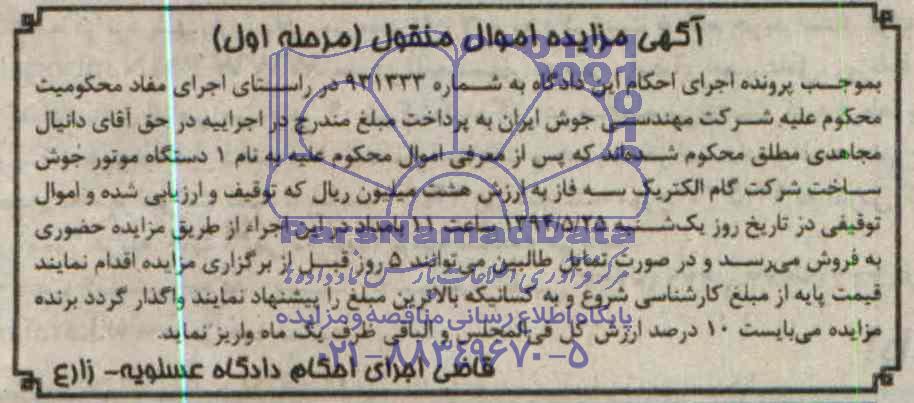 آگهی مزایده اموال منقول (مرحله اول)
بموجب پرونده اجرای احکام این دادگاه به شماره ۹۳۱۳۳۳ در راستای اجرای مفاد محکومیت
محکوم علیه شرکت مهندسی جوش ایران به پرداخت مبلغ مندرج در اجراییه در حق آقای دانیال
مجاهدی مطلق محکوم شده‌اند که پس از معرفی اموال محکوم علیه به نام ۱ دستگاه موتور جوش
ساخت شرکت گام الکتریک سه فاز به ارزش هشت میلیون ریال که توقیف و ارزیابی شده و اموال
توقیفی در تاریخ روز یک‌شنبه ۱۳۹۴/۵/۲۵ ساعت ۱۱ بامداد در این اجراء از طریق مزایده حضوری
به فروش می‌رسد و در صورت تمایل طالبین می‌توانند ۵ روز قبل از برگزاری مزایده اقدام نمایند
قیمت پایه از مبلغ کارشناسی شروع و به کسانیکه بالاترین مبلغ را پیشنهاد نمایند واگذار گردد برنده
مزایده می‌بایست ۱۰ درصد ارزش کل فی‌المجلس و الباقی ظرف یک ماه واریز نماید.
قاضی اجرای احکام دادگاه عسلویه- زارع
ParsNamadData
مرکز فرآوری اطلاعات پارس نماد داده‌ها
پایگاه اطلاع رسانی مناقصه و مزایده
۰۲۱-۸۸۳۴۹۶۷۰-۵